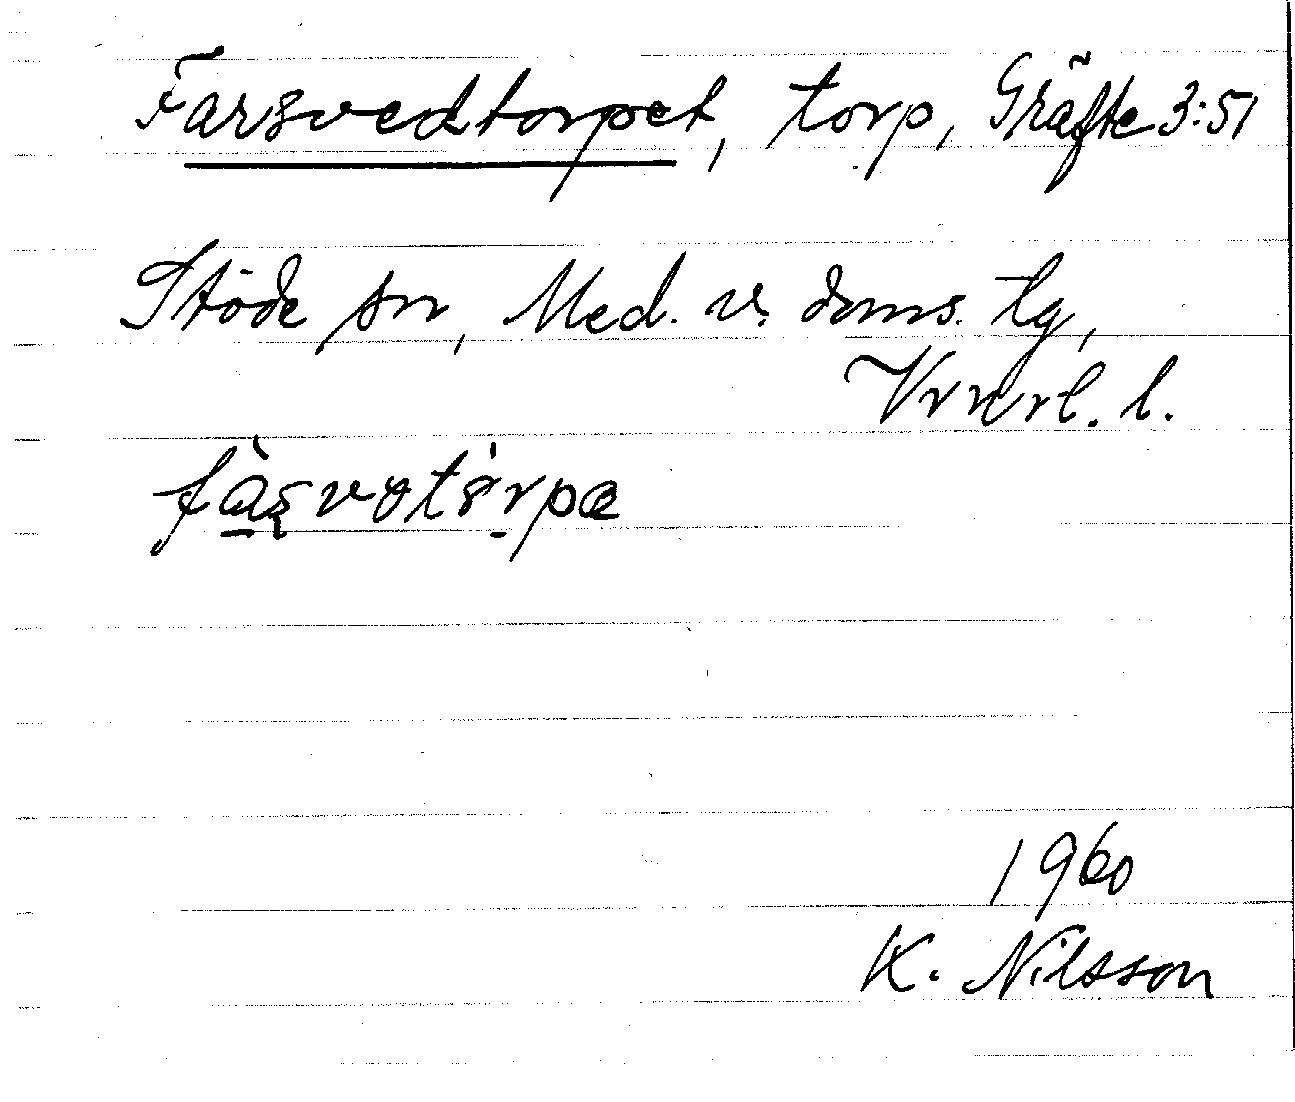 Farsvedtorpet, torp, Gräfte 3:51
Stöde sn, Med. v. doms. tg,
Vrnrl. l.
1960
K. Nilsson